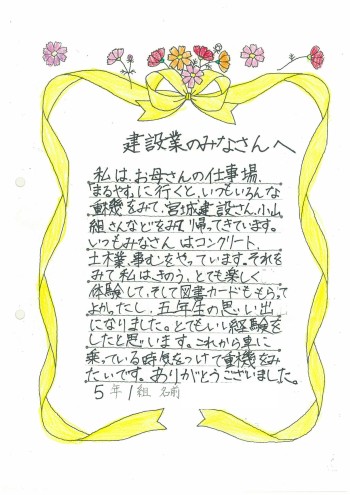 建設業のみなさんへ
私は、お母さんの仕事場、
まるやすに行くと、いつもいろんな
重機をみて、宮城建設さん、小山
組さんなどをみて帰ってきています。
いつもみなさんはコンクリート、
土木業、事むをやっています。それを
みて私は、きのう、とても楽しく
体験して、そして図書カードももらって
よかったし、五年生の思い出
になりました。とてもいい経験を
したと思います。これから車に
乗っている時気をつけて重機をみ
たいです。ありがとうございました。
5年1組 名前